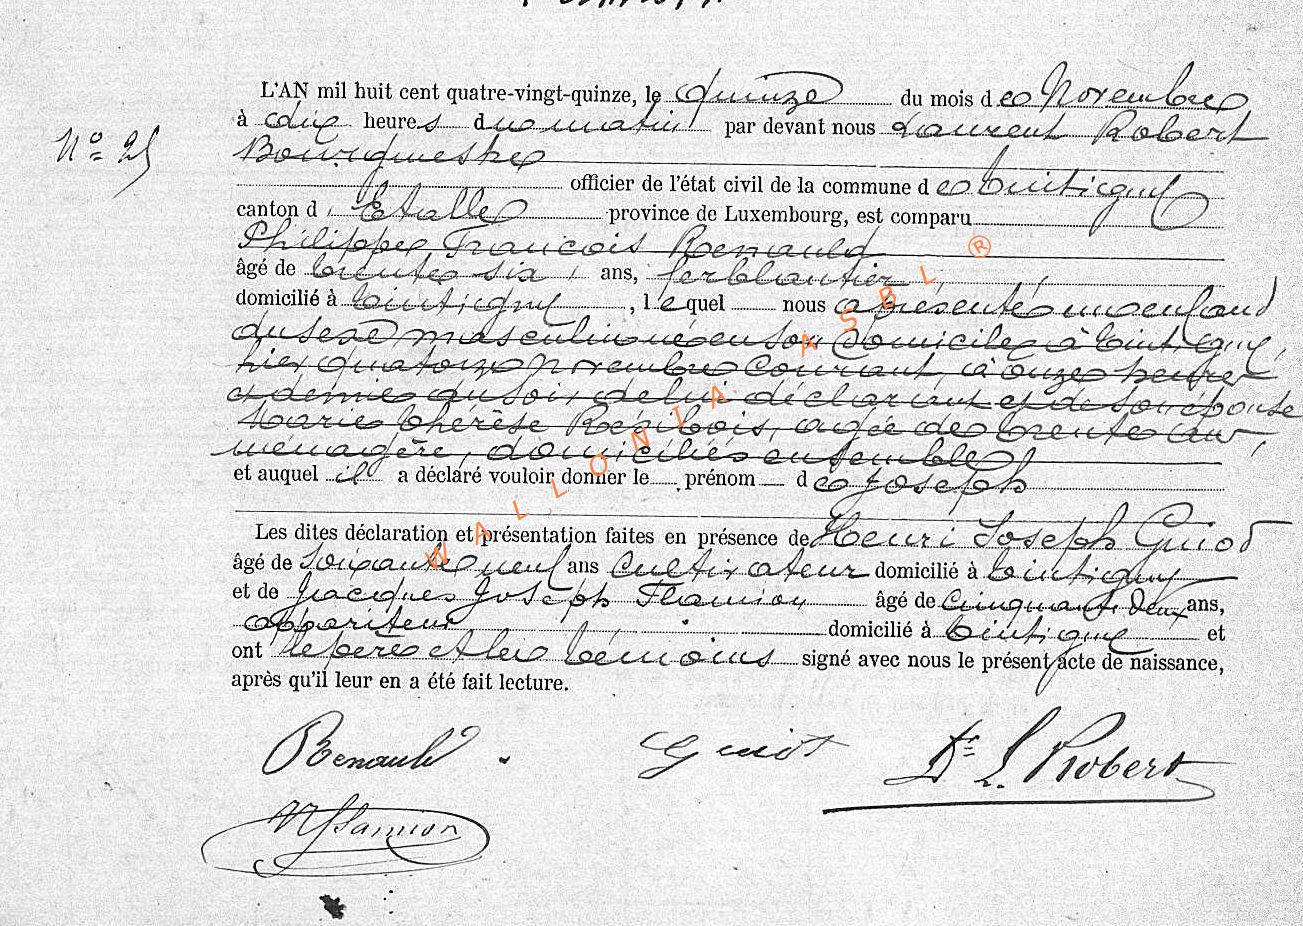 L'AN mil huit cent quatre-vingt-quinze, le quinze du mois de Novembre
à dix heures du matin par devant nous Laurent Robert
N° 25
Bourgmestre
officier de l'état civil de la commune de Tintigny
canton d'Etalle province de Luxembourg, est comparu
Philippe François Renauld
âgé de trente six ans, ferblantier,
domicilié à Tintigny, lequel nous a présenté un enfant
du sexe masculin né en son domicile à Tintigny,
hier quatorze Novembre courant, à onze heures
et demie du soir, de lui déclarant et de son épouse
Marie Thérèse Régibois, agée de trente ans,
ménagère, domiciliés ensemble
et auquel il a déclaré vouloir donner le prénom de Joseph
Les dites déclaration et présentation faites en présence de Henri Joseph Guiot
âgé de soixante neuf ans cultivateur domicilié à Tintigny
et de Jacques Joseph Flamion âgé de cinquante deux ans,
appariteur domicilié à Tintigny et
ont le père et les témoins signé avec nous le présent acte de naissance,
après qu'il leur en a été fait lecture.
Renauld Guiot Dr L. Robert
Flamion
WALLONIA ASBL ®